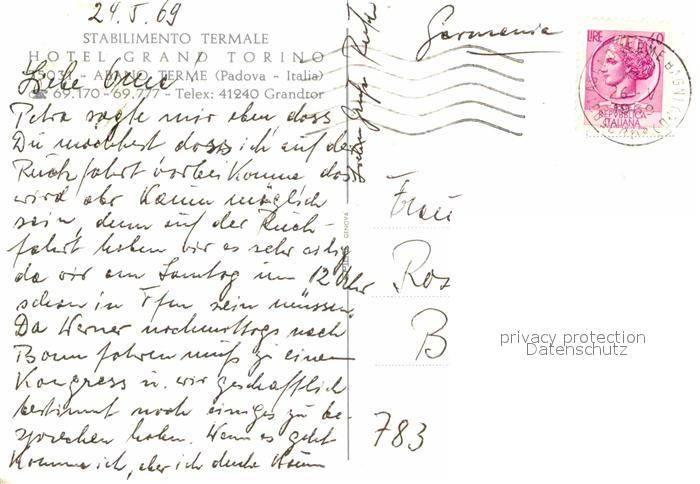 24.5.69
STABILIMENTO TERMALE
HOTEL GRAND TORINO
35031 - ABANO TERME (Padova - Italia)
☎ 69.170 - 69.777 - Telex: 41240 Grandtor
Liebe
Petra sagte mir eben dass
Du möchtest dass ich auf der
Rückfahrt vorbei komme das
wird aber kaum möglich
sein, denn auf der Rück-
fahrt haben wir es sehr eilig
da wir am Sonntag um 12 Uhr
schon in Ffm sein müssen.
Da Werner nachmittags nach
Bonn fahren muß zu einem
Kongress u. wir geschäftlich
bestimmt noch einiges zu be-
sprechen haben. Wenn es geht
komme ich, aber ich denke kaum
Germania
LIRE 40
REPUBBLICA
ITALIANA
TERME BAGNI
Frau
Ros
B
783
GENOVA
privacy protection
Datenschutz